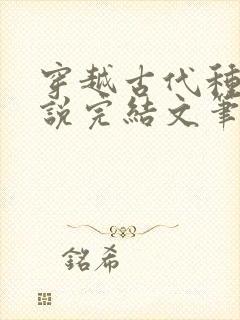 穿越古代種
說完結文筆
銘希